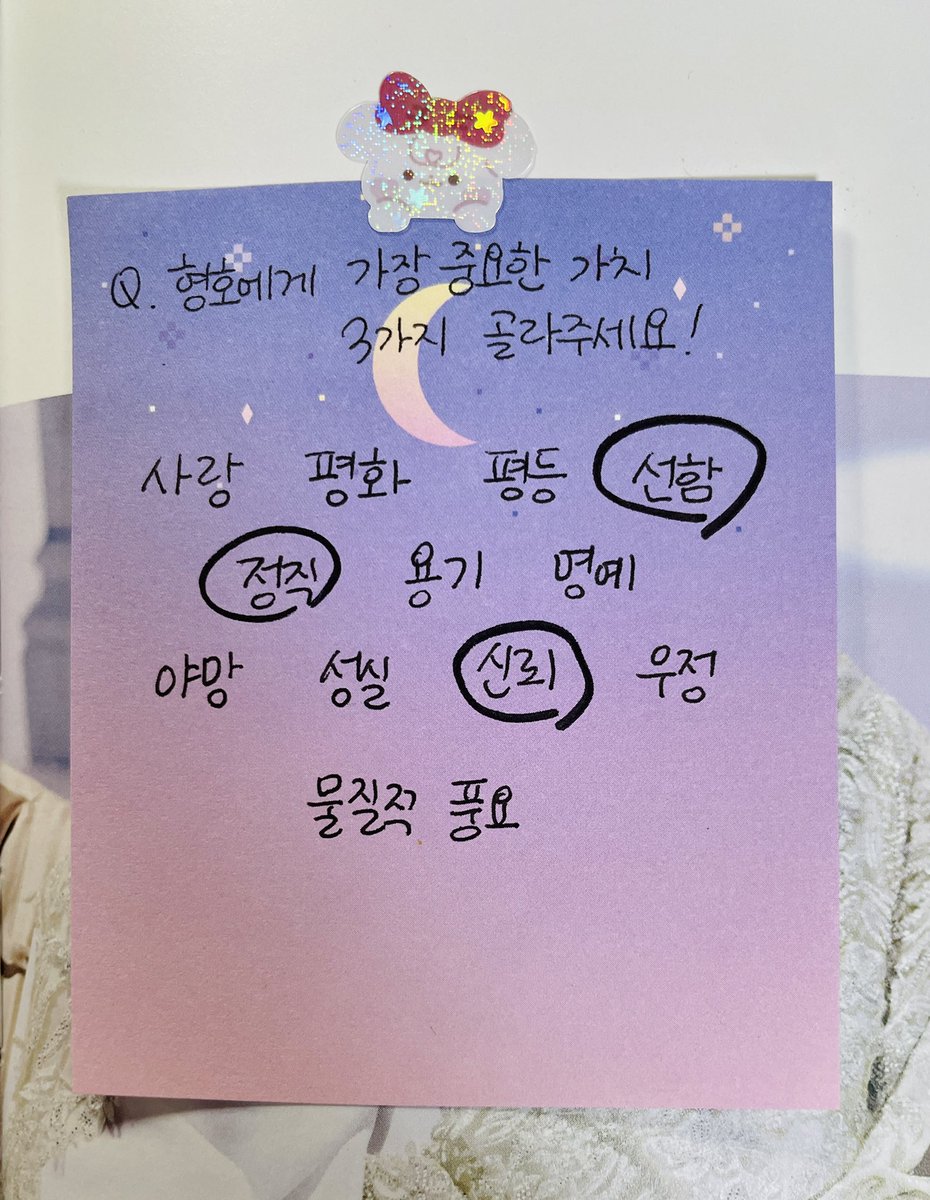 Q. 형호에게 가장 중요한 가치
3가지 골라주세요!
사랑 평화 평등 선함
정직 용기 명예
야망 성실 신뢰 우정
물질적 풍요